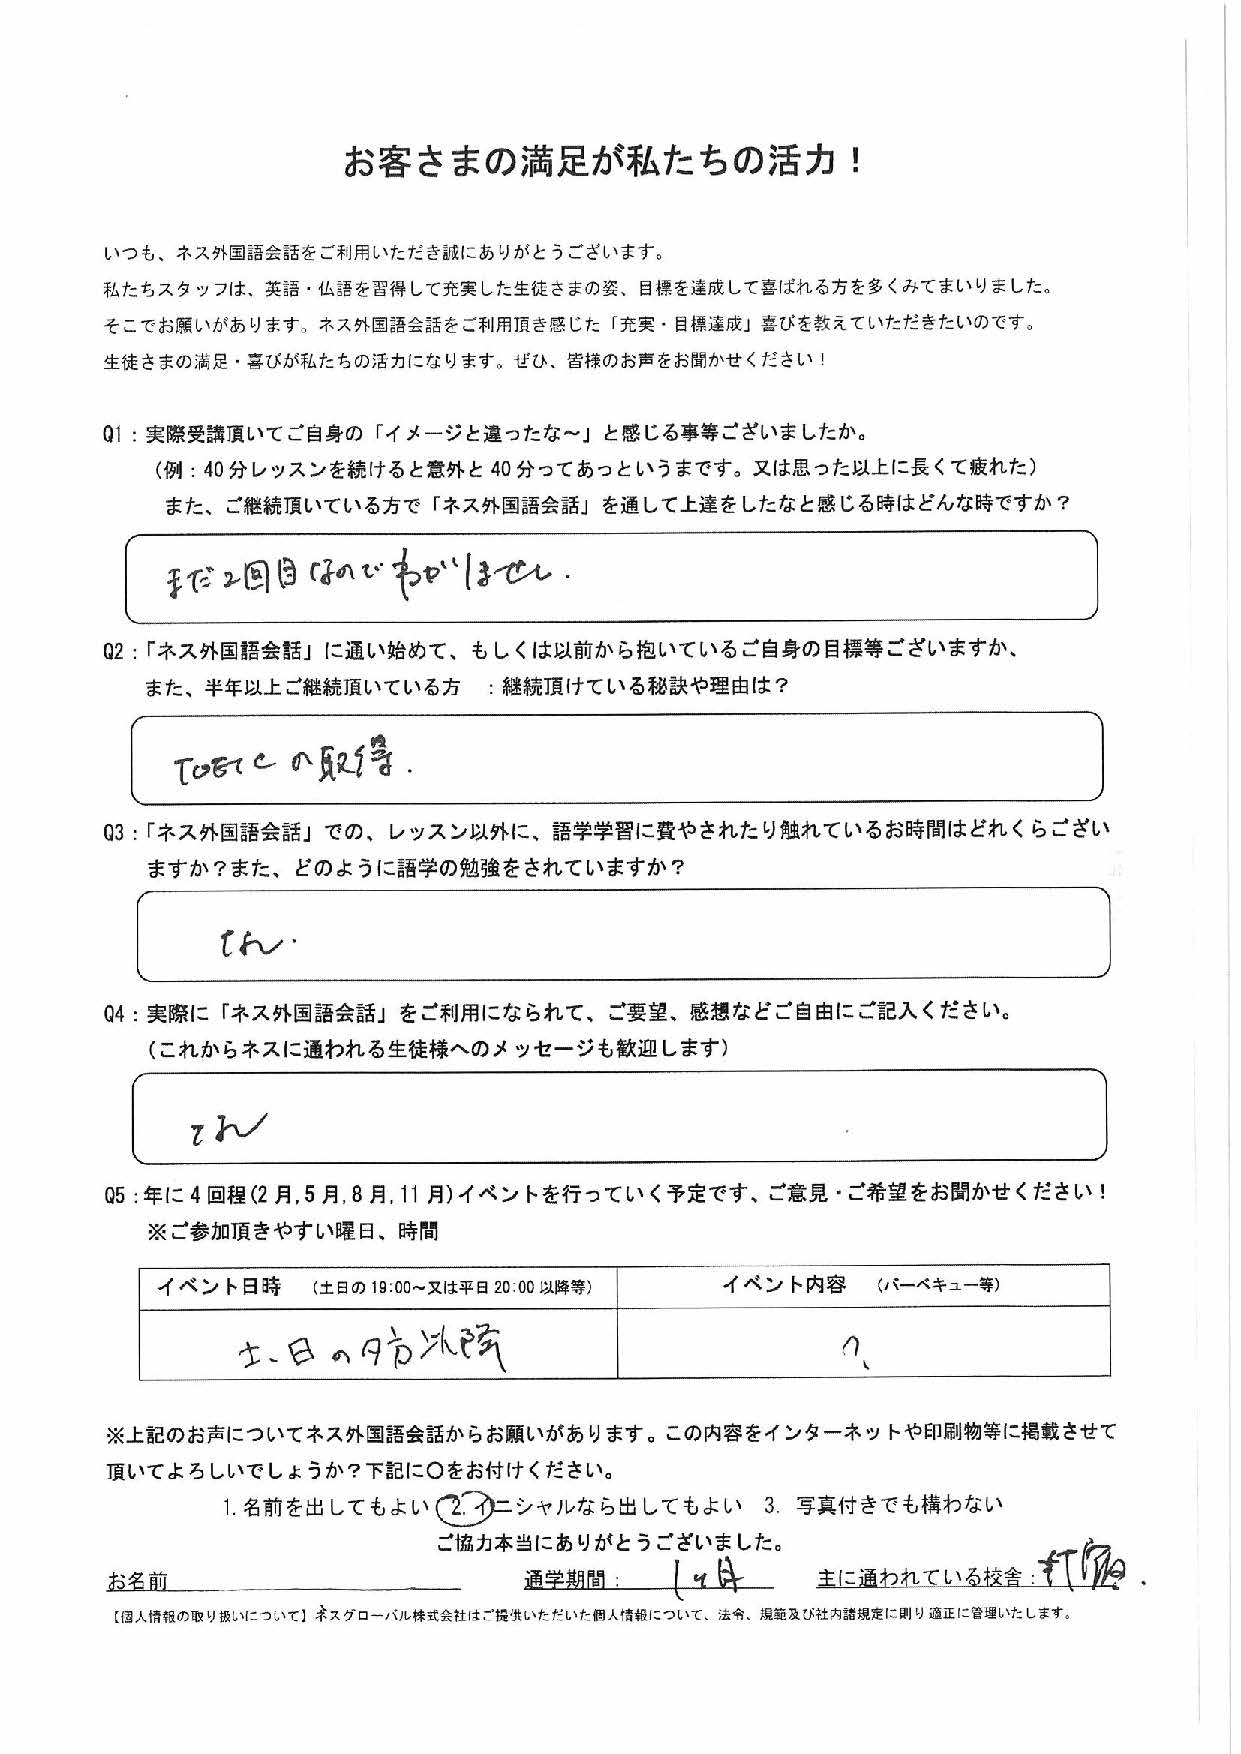 お客さまの満足が私たちの活力！
いつも、ネス外国語会話をご利用いただき誠にありがとうございます。
私たちスタッフは、英語・仏語を習得して充実した生徒さまの姿、目標を達成して喜ばれる方を多くみてまいりました。
そこでお願いがあります。ネス外国語会話をご利用頂き感じた「充実・目標達成」喜びを教えていただきたいのです。
生徒さまの満足・喜びが私たちの活力になります。ぜひ、皆様のお声をお聞かせください！
Q1：実際受講頂いてご自身の「イメージと違ったな～」と感じる事等ございましたか。
（例：40分レッスンを続けると意外と40分ってあっというまです。又は思った以上に長くて疲れた）
また、ご継続頂いている方で「ネス外国語会話」を通して上達をしたなと感じる時はどんな時ですか？
まだ2回目なのでわかりません.
Q2：「ネス外国語会話」に通い始めて、もしくは以前から抱いているご自身の目標等ございますか、
また、半年以上ご継続頂いている方　：継続頂けている秘訣や理由は？
TOEICの取得.
Q3：「ネス外国語会話」での、レッスン以外に、語学学習に費やされたり触れているお時間はどれくらござい
ますか？また、どのように語学の勉強をされていますか？
Q4：実際に「ネス外国語会話」をご利用になられて、ご要望、感想などご自由にご記入ください。
（これからネスに通われる生徒様へのメッセージも歓迎します）
Q5：年に4回程(2月,5月,8月,11月)イベントを行っていく予定です、ご意見・ご希望をお聞かせください！
※ご参加頂きやすい曜日、時間
イベント日時　（土日の19:00～又は平日20:00以降等）　イベント内容　（バーベキュー等）
土、日の夕方以降　?
※上記のお声についてネス外国語会話からお願いがあります。この内容をインターネットや印刷物等に掲載させて
頂いてよろしいでしょうか？下記に〇をお付けください。
1. 名前を出してもよい　2. イニシャルなら出してもよい　3. 写真付きでも構わない
ご協力本当にありがとうございました。
お名前　通学期間：1ヶ月　主に通われている校舎：新宿.
【個人情報の取り扱いについて】ネスグローバル株式会社はご提供いただいた個人情報について、法令、規範及び社内諸規定に則り適正に管理いたします。